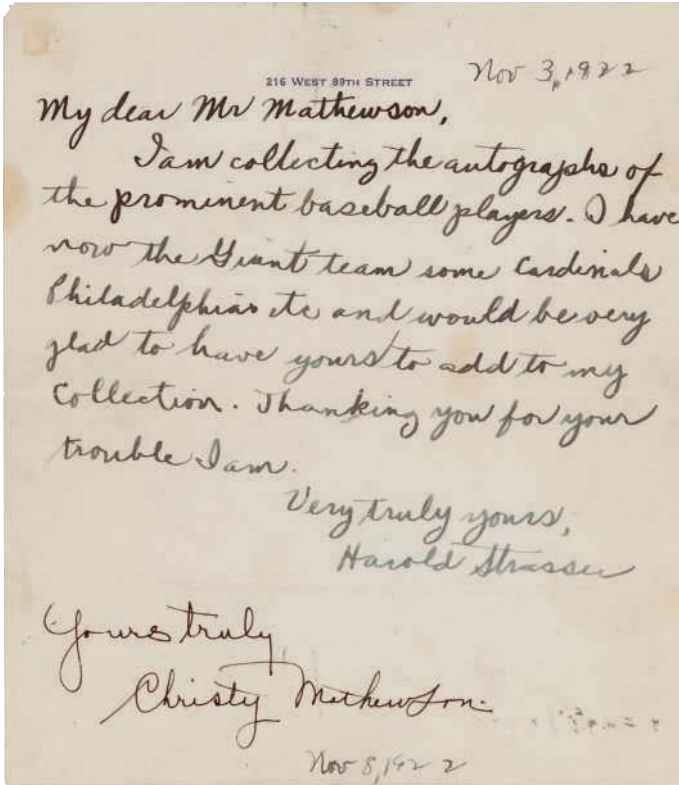 Nov 3, 1922
216 WEST 89TH STREET
My dear Mr Mathewson,
I am collecting the autographs of
the prominent baseball players. I have
now the Giant team some Cardinals
Philadelphias etc and would be very
glad to have yours to add to my
collection. Thanking you for your
trouble I am.
Very truly yours,
Harold Strasser
Yours truly
Christy Mathewson.
Nov 8, 1922